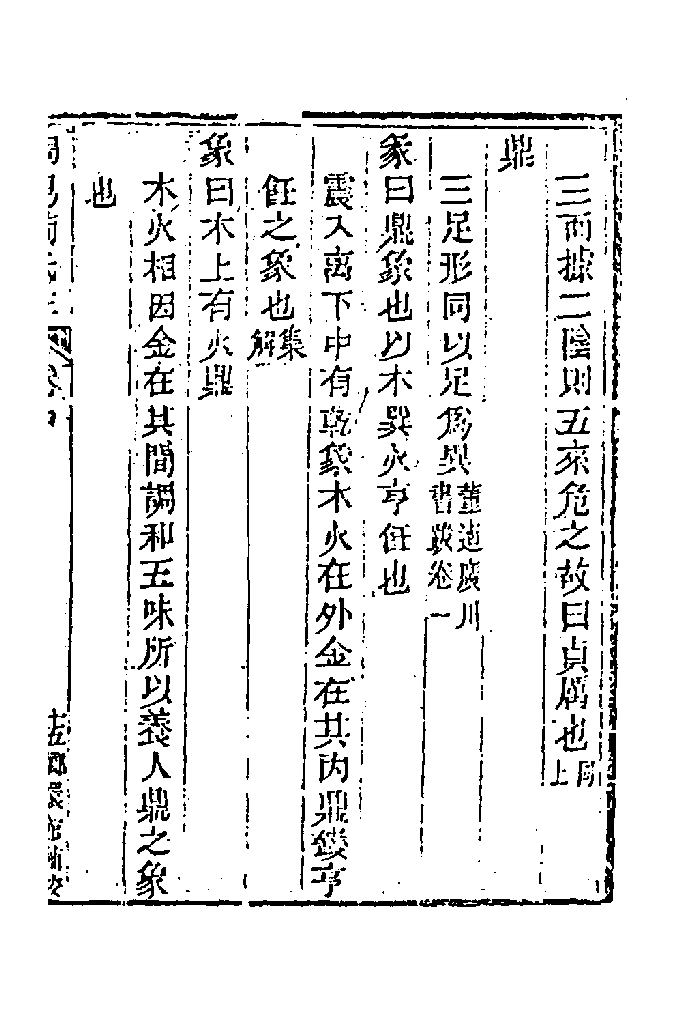 三而據二陰則五來危之故曰貞厲也同上
鼎
三足形同以足爲異董逌廣川書跋卷一
彖曰鼎象也以木巽火亨飪也
震入离下中有乾象木火在外金在其内鼎鑊亨
飪之象也集解
象曰木上有火鼎
木火相因金在其閒調和五味所以養人鼎之象
也
卷四